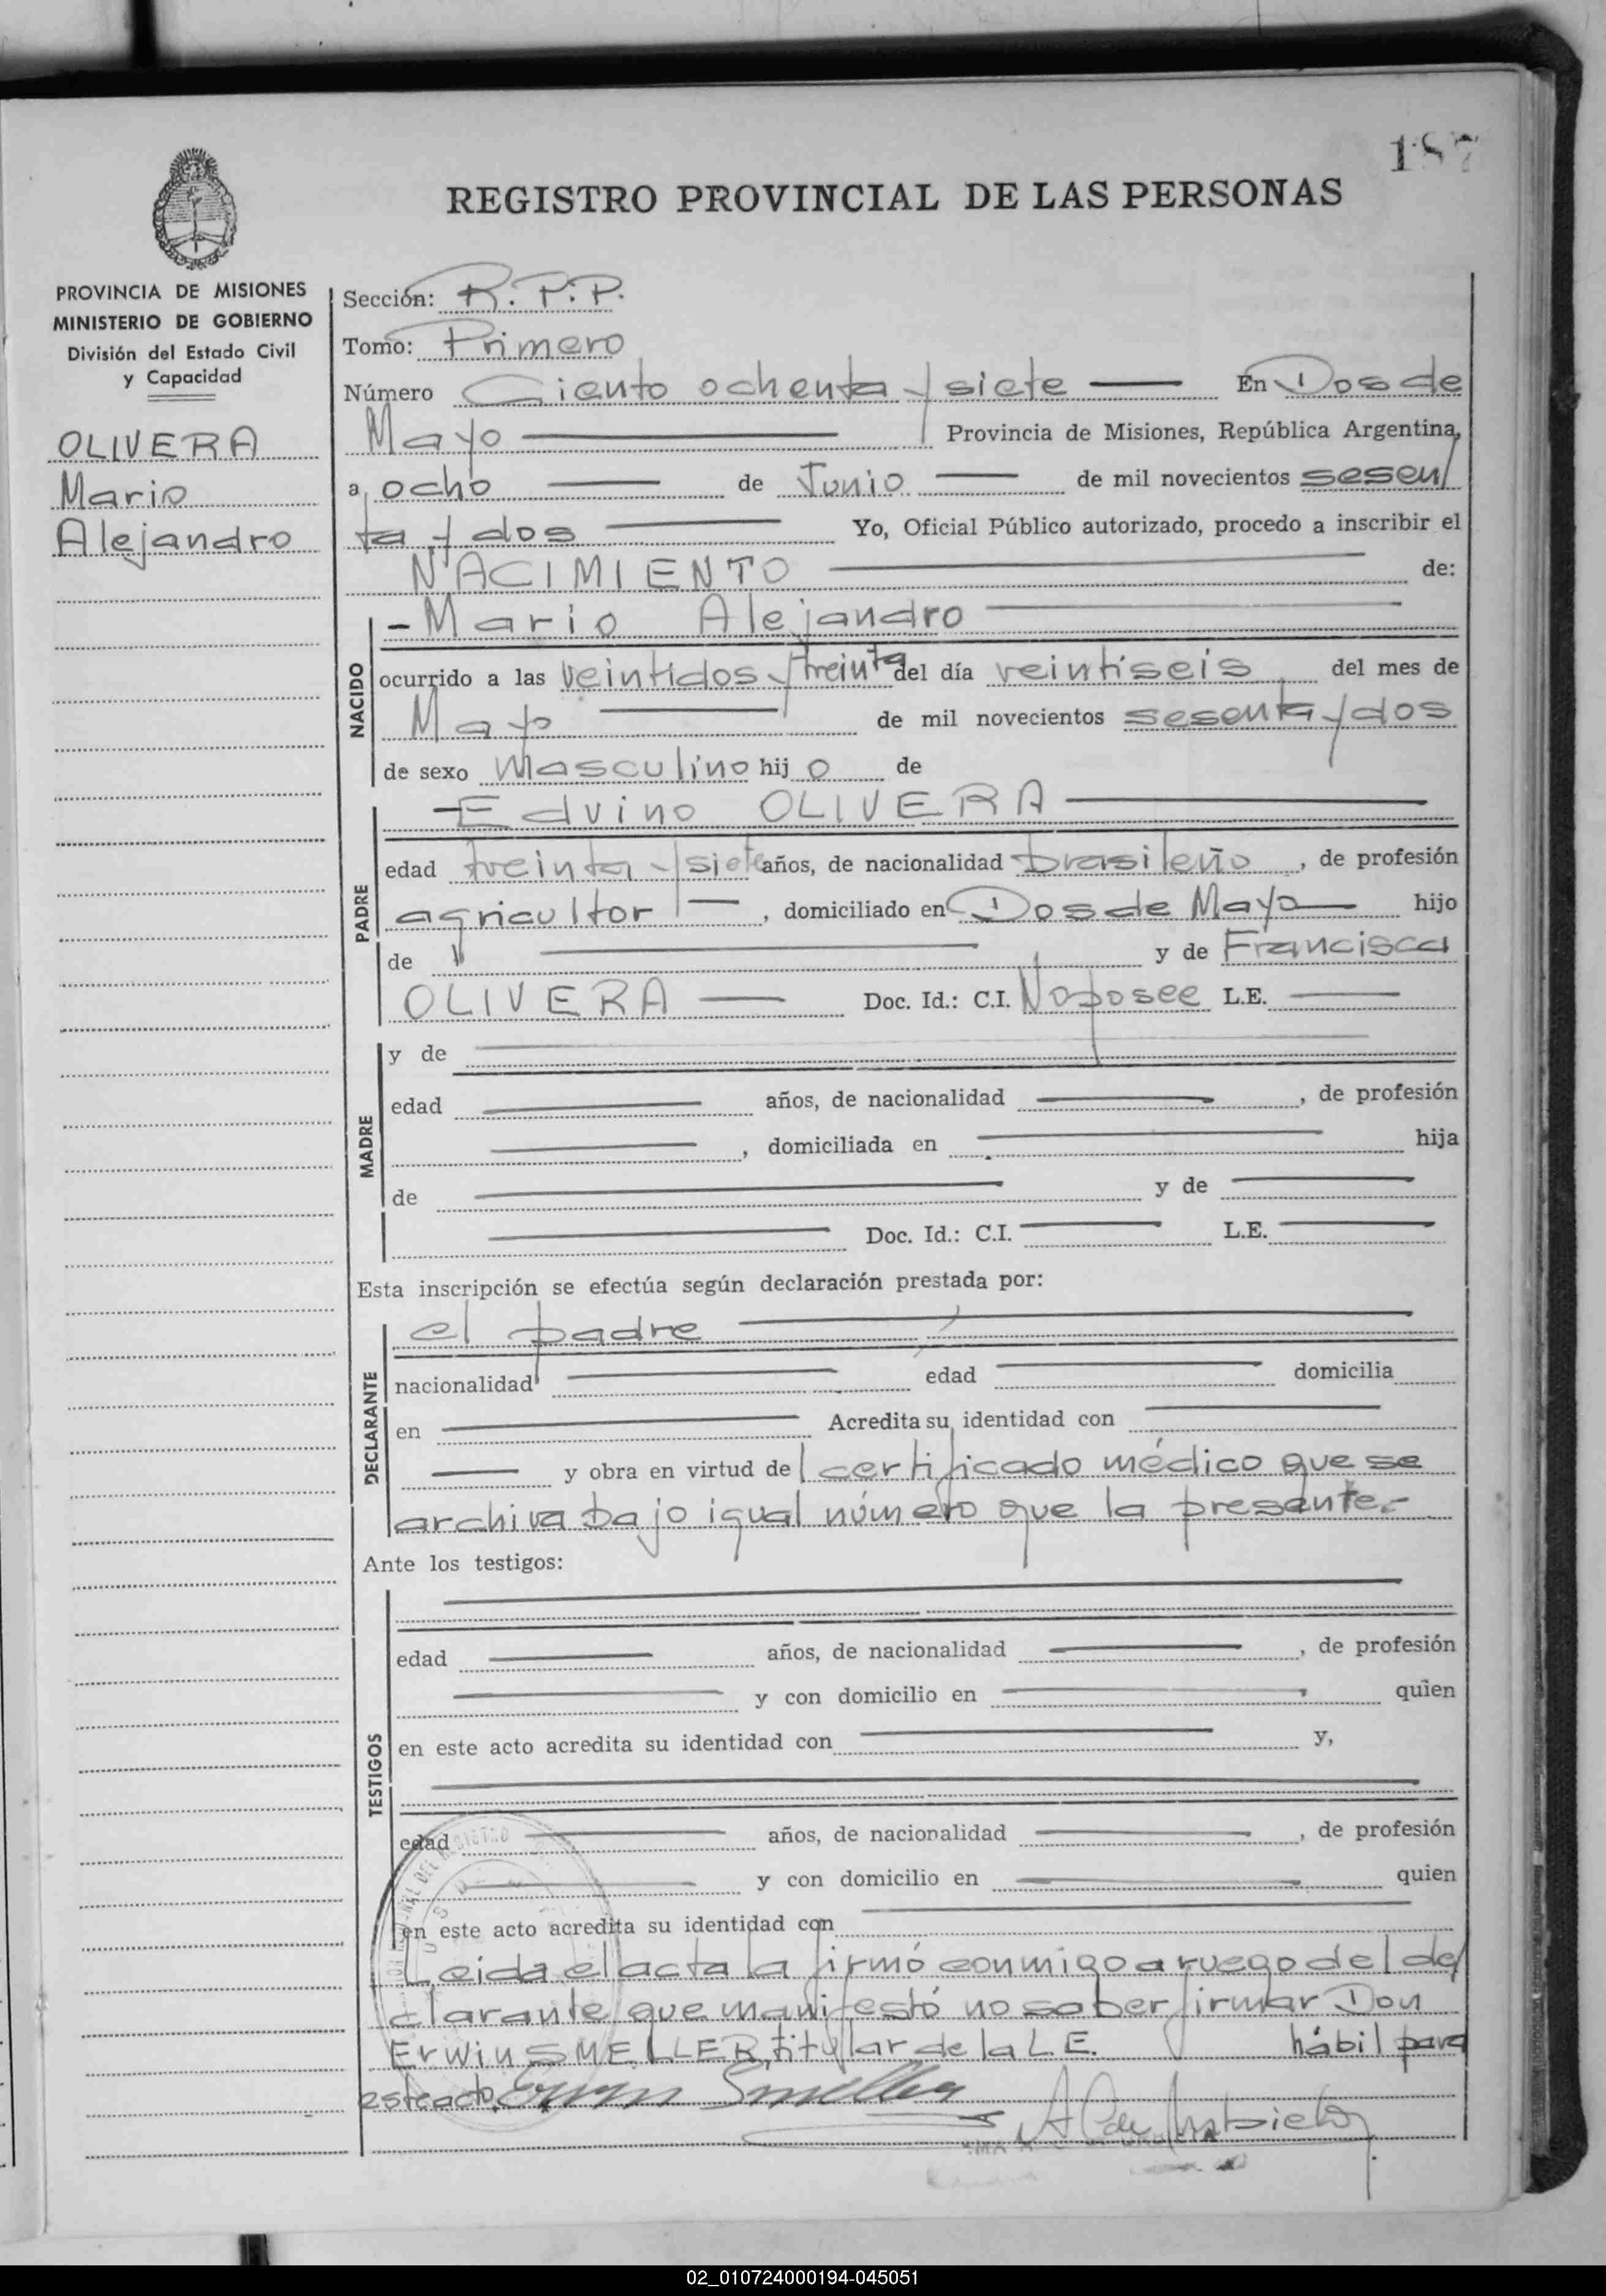 187
REGISTRO PROVINCIAL DE LAS PERSONAS
PROVINCIA DE MISIONES
MINISTERIO DE GOBIERNO
División del Estado Civil
y Capacidad
OLIVERA
Mario
Alejandro
Sección: R. P. P.
Tomo: Primero
Número Ciento ochenta y siete En Dos de
Mayo Provincia de Misiones, República Argentina,
a ocho de Junio de mil novecientos sesen
ta y dos Yo, Oficial Público autorizado, procedo a inscribir el
NACIMIENTO de:
NACIDO
- Mario Alejandro
ocurrido a las veintidos y treinta del día veintiseis del mes de
Mayo de mil novecientos sesenta y dos
de sexo Masculino hijo de
PADRE
Edvino OLIVERA
edad treinta y siete años, de nacionalidad brasileño, de profesión
agricultor, domiciliado en Dos de Mayo hijo
de y de Francisca
OLIVERA Doc. Id.: C.I. No posee L.E.
MADRE
y de
edad años, de nacionalidad , de profesión
, domiciliada en hija
de y de
Doc. Id.: C.I. L.E.
Esta inscripción se efectúa según declaración prestada por:
DECLARANTE
el padre
nacionalidad edad domicilia
en Acredita su identidad con
y obra en virtud del certificado médico que se
archiva bajo igual número que la presente.-
Ante los testigos:
TESTIGOS
edad años, de nacionalidad , de profesión
y con domicilio en quien
en este acto acredita su identidad con y,
edad años, de nacionalidad , de profesión
y con domicilio en quien
en este acto acredita su identidad con
Leida el acta la firmó conmigo a ruego del de
clarante que manifestó no saber firmar Don
Erwin SMELLER, titular de la L.E. hábil para
este acto. Erwin Smeller
02_010724000194-045051